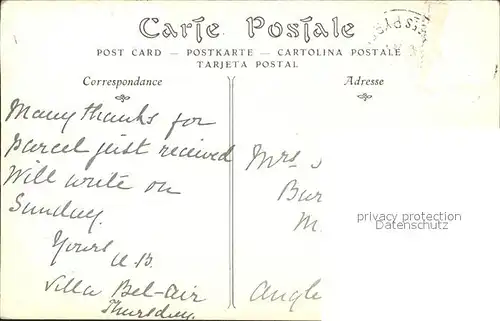 Carte Postale
POST CARD — POSTKARTE — CARTOLINA POSTALE
TARJETA POSTAL
Correspondance
Adresse
Many thanks for
parcel just received
Will write on
Sunday.
Yours
Villa Bel-Air
Thursday.
Mrs
Bur
M
Angle
privacy protection
Datenschutz